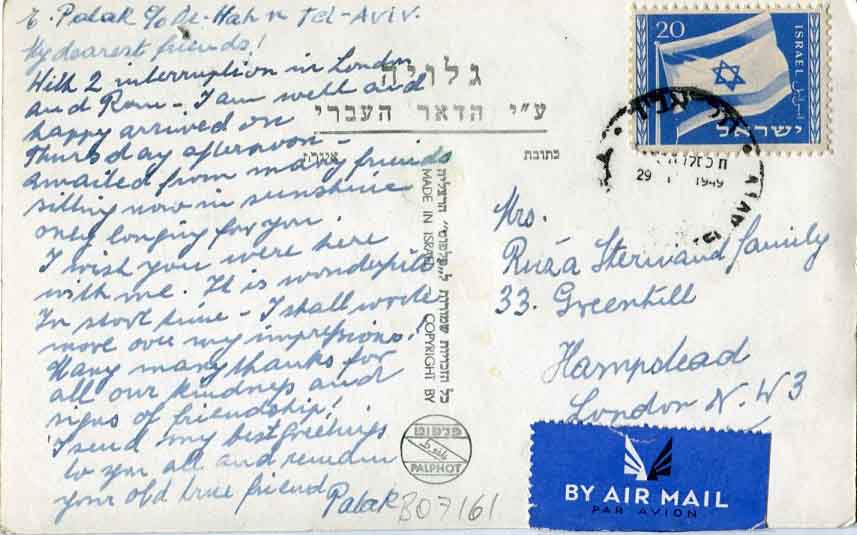 E. Polak c/o De-Hah n Tel-Aviv.
My dearest friends!
With 2 interruption in London
and Rom - I am well and
happy arrived on
Thursday afternoon -
awaited from many friends
sitting now in sunshine
only longing for you.
I wish you were here
with me. It is wonderfull
In short time - I shall wrote
more over my impressions!
Many many thanks for
all our kindness and
signs of friendship!
I send my best greetings
to you all and remain
your old true friend
Polak
גלויה
ע"י הדאר העברי
אגרת
כתובת
כל הזכויות שמורות ל"פלפוט" הרצליה
MADE IN ISRAEL - COPYRIGHT BY
פלפוט
PALPHOT
B07161
20
ISRAEL
اسرائيل
ישראל
תל אביב
29
1949
Mrs.
Ruža Stern and family
33. Greenhill
Hampstead
London N.W3
BY AIR MAIL
PAR AVION